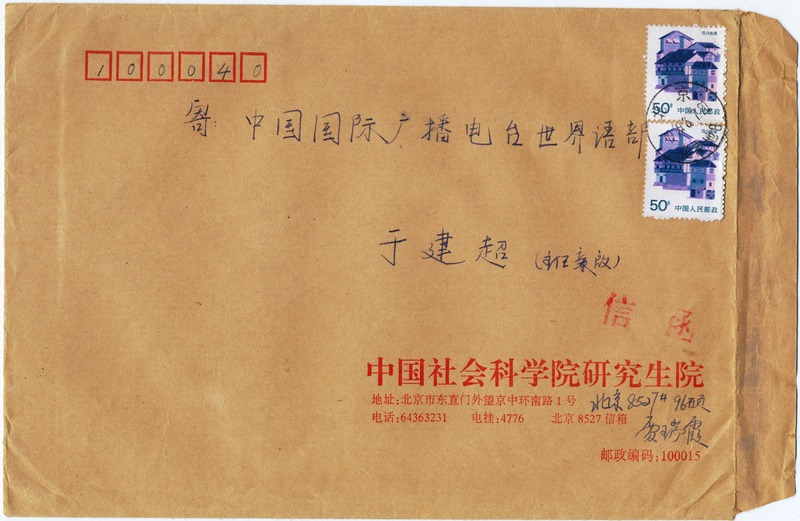 100040
寄: 中国国际广播电台世界语部
于建超 (主任亲启)
50分 中国人民邮政
50分 中国人民邮政
京
信函
中国社会科学院研究生院
地址:北京市东直门外望京中环南路1号
电话:64363231 电挂:4776 北京8527信箱
北京8527#
夏瑞霞
邮政编码:100015